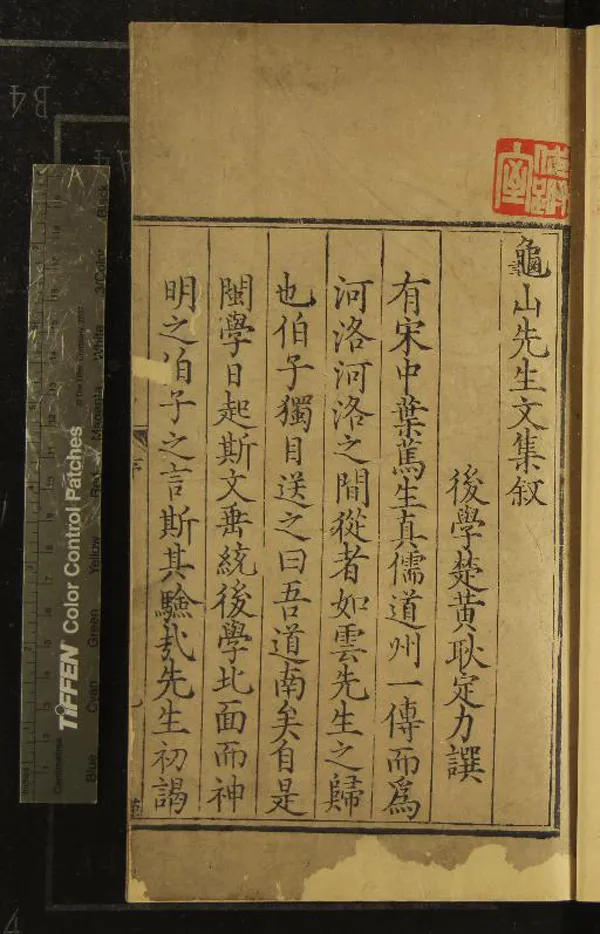 龜山先生文集叙
後學楚黃耿定力譔
有宋中葉篤生真儒道州一傳而爲
河洛河洛之間從者如雲先生之歸
也伯子獨目送之曰吾道南矣自是
閩學日起斯文垂統後學北面而神
明之伯子之言斯其驗哉先生初謁
序
B4
A4
TIFFEN Color Control Patches
© The Tiffen Company, 2007
Inches
Centimetres
Blue
Cyan
Green
Yellow
Red
Magenta
White
3/Color
Black